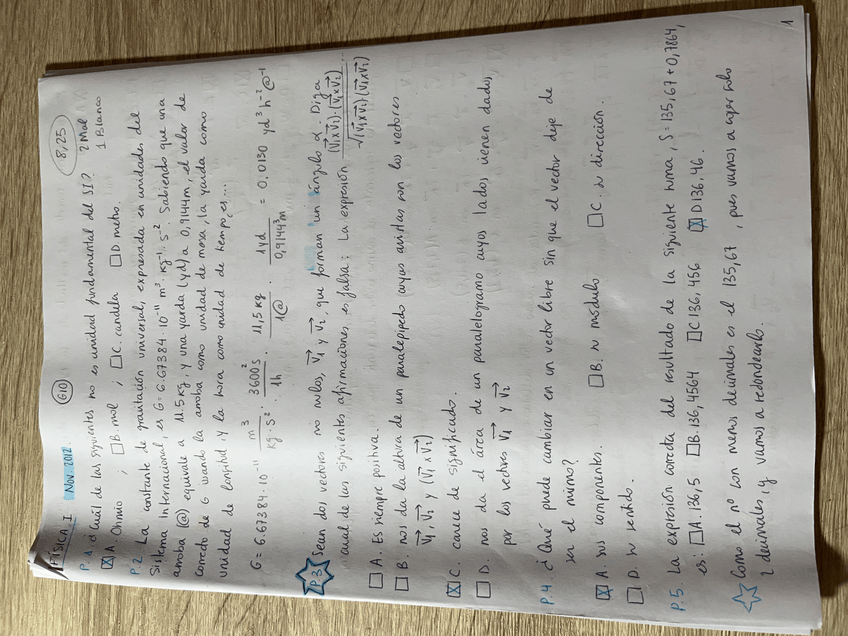 FÍSICA_I Nov. 2012 G10 8,25
P.1 ¿Cuál de las siguientes no es unidad fundamental del SI? 2 Mal
☒ A. Ohmio ; ☐ B mol ; ☐ C. candela ☐ D metro. 1 Blanco
P.2 La constante de gravitación universal, expresada en unidades del
Sistema Internacional, es G = 6.67384·10⁻¹¹ m³·kg⁻¹·s⁻². Sabiendo que una
arroba (@) equivale a 11.5 kg, y una yarda (yd) a 0,9144m, el valor de
correcto de G usando la arroba como unidad de masa, la yarda como
unidad de longitud y la hora como unidad de tiempo, es...
G = 6.67384·10⁻¹¹ m³/kg·s² · 3600²s/1h · 11,5 kg/1@ · 1yd/0,9144³m = 0.0130 yd³ h⁻² @⁻¹
P.3 Sean dos vectores no nulos, v₁ y v₂, que forman un ángulo α. Diga
cual de las siguientes afirmaciones es falsa: La expresión (v₁×v₂)·(v₁×v₂)/√(v₁×v₂)·(v₁×v₂) ...
☐ A. Es siempre positiva.
☐ B. nos da la altura de un paralepípedo cuyas aristas son los vectores
v₁, v₂ y (v₁×v₂)
☒ C. carece de significado.
☐ D. nos da el área de un paralelogramo cuyos lados vienen dados
por los vectores v₁ y v₂
P.4. ¿Qué puede cambiar en un vector libre sin que el vector deje de
ser el mismo?
☒ A. sus componentes. ☐ B. su módulo ☐ C. su dirección.
☐ D. su sentido.
P.5 La expresión correcta del resultado de la siguiente suma, S = 135,67 + 0,7864,
es: ☐ A. 136,5 ☐ B. 136,4564 ☐ C 136,456 ☒ D 136,46.
Como el nº con menos decimales es el 135,67, pues vamos a coger solo
2 decimales, y vamos a redondearlo.
1